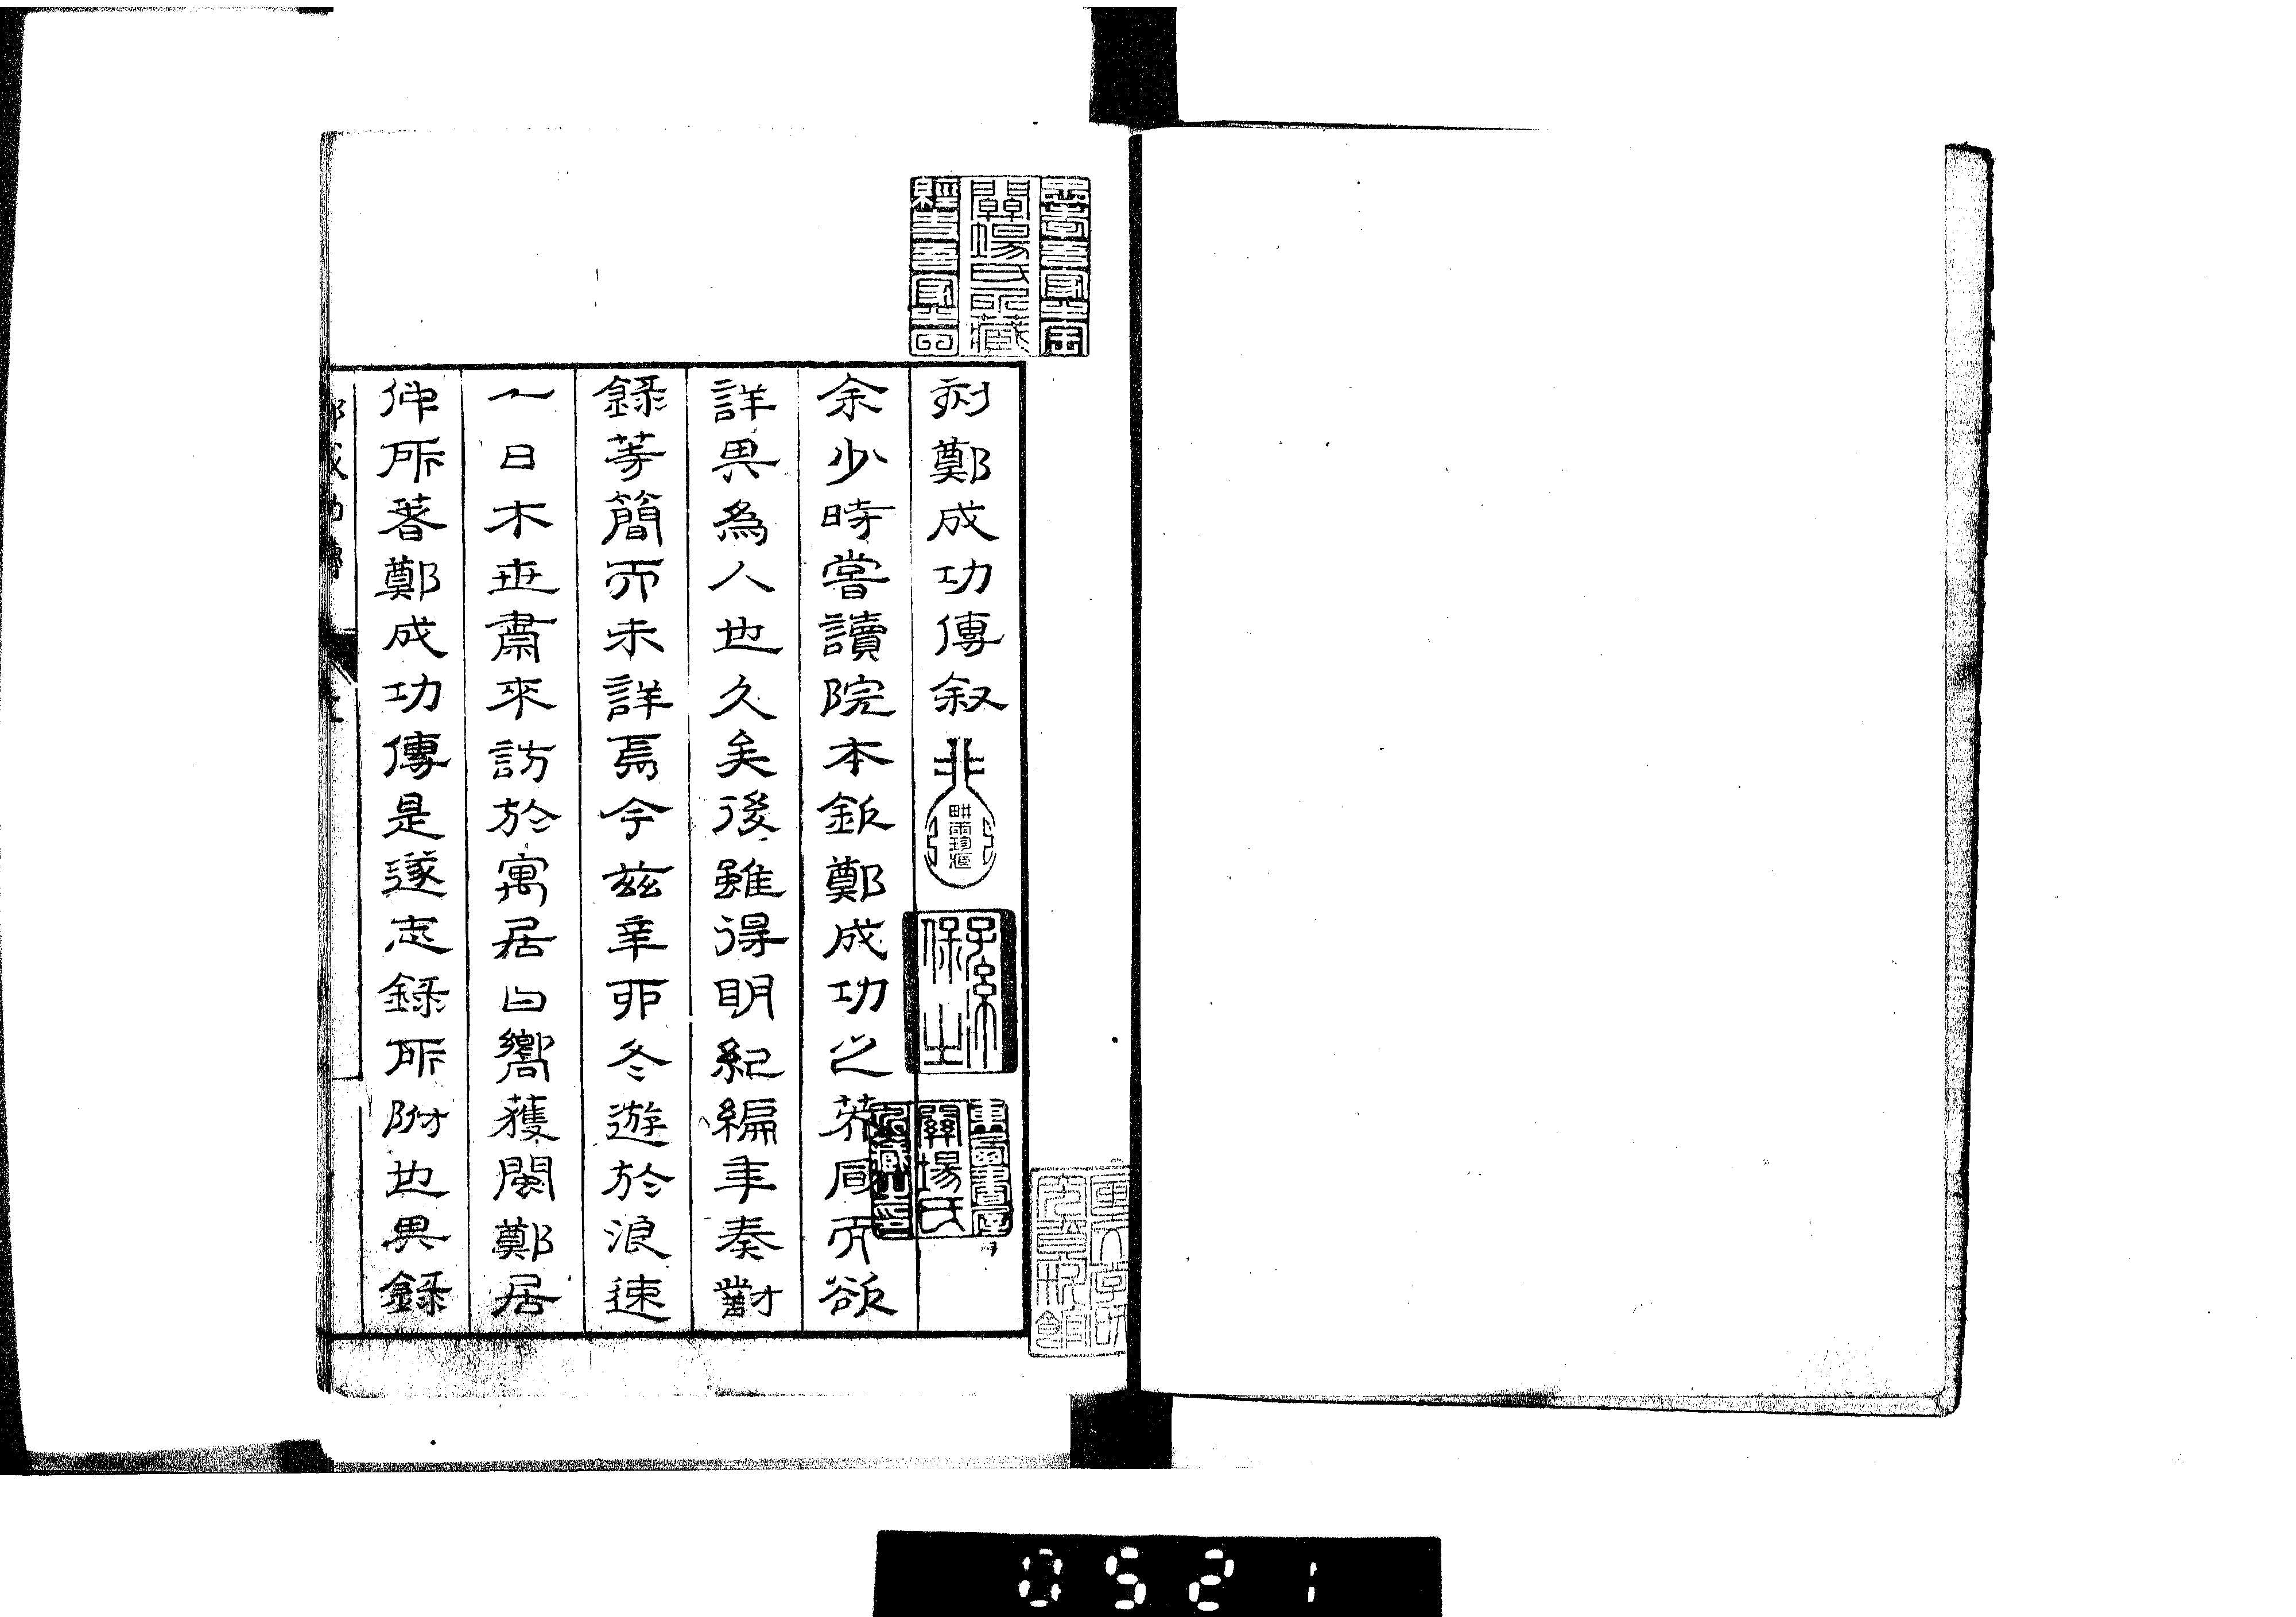 刻鄭成功傳叙
余少時嘗讀院本叙鄭成功之
詳其爲人也久矣後雖得明紀編年奏對
錄等簡而未詳焉今茲辛卯冬遊於浪速
一日木世肅來訪於寓居曰嚮獲閩鄭居
仲所著鄭成功傳是遂志錄所附也其錄
關場氏所藏
子孫保之
關場氏
0521